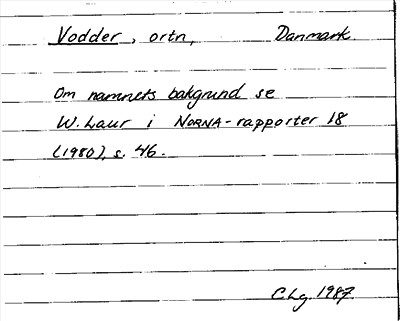 Vodder, ortn, Danmark.
Om namnets bakgrund se
W. Laur i NORNA-rapporter 18
(1980), s. 46.
C Lg. 1987